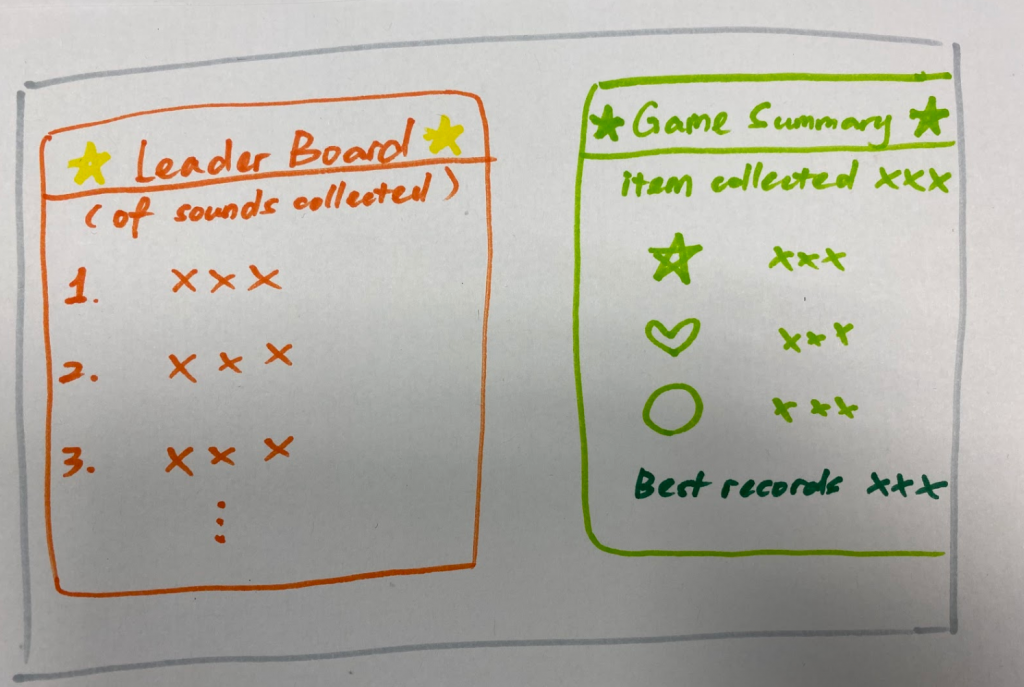 Leader Board
(of sounds collected)
1. xxx
2. xxx
3. xxx
Game Summary
item collected xxx
xxx
xxx
xxx
Best records xxx